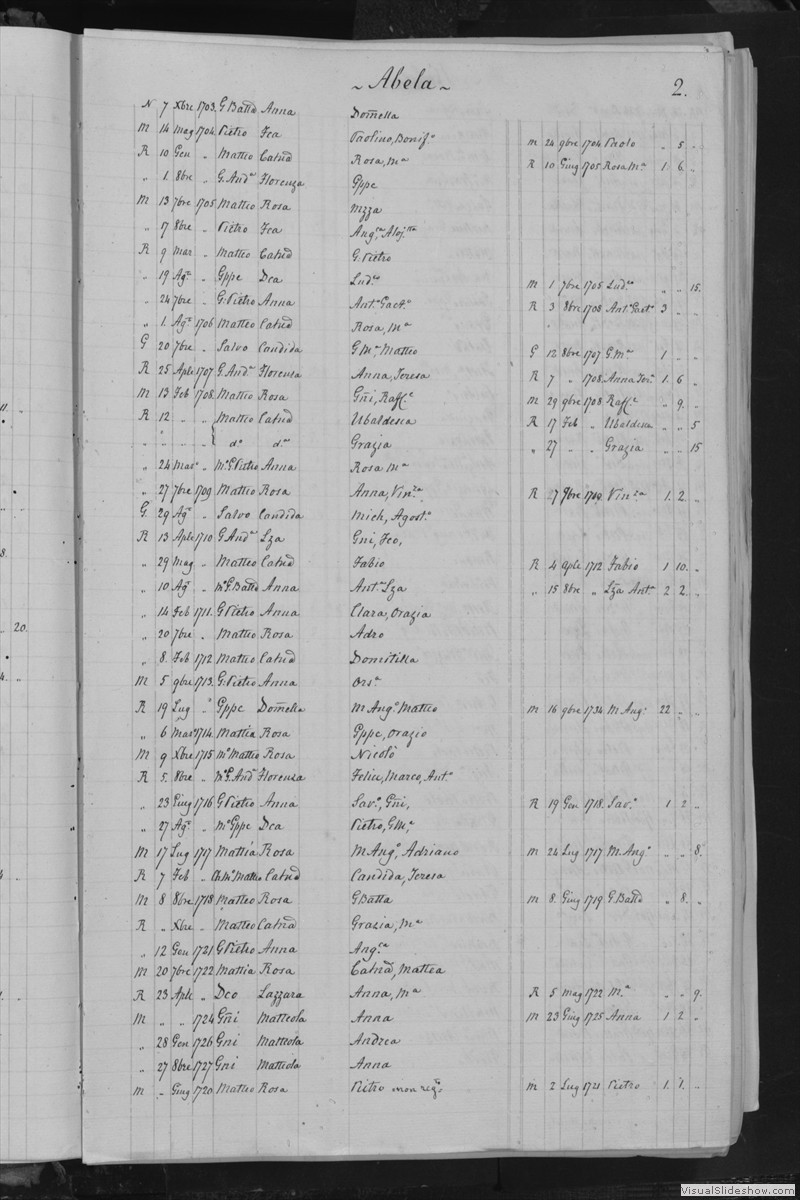 ~ Abela ~ 2.
N 7 Xbre 1703. G Battã Anna Dom̃ella
M 14 Mag 1704 Pietro Fca Paolino, Bonif.º m 24 9bre 1704 Paolo „ 5 „
R 10 Gen „ Matteo Catnã Rosa, Mª R 10 Giug 1705 Rosa Mª 1 6 „
„ 1. 8bre „ G. Andª Florenza Gppe
M 13 7bre 1705 Matteo Rosa Mzza
„ 17 8bre „ Pietro Fca Ang.ca Aloj.
R 9 Mar „ Matteo Catnã G. Pietro
„ 19 Ag.º „ Gppe Dca Lud.ca M 1 7bre 1705 Lud.ca „ „ 15.
„ 24 7bre „ G. Pietro Anna Ant.º Gaet.º R 3 8bre 1708 Ant.º Gaet.º 3 „ „
„ 1. Ag.º 1706 Matteo Catnã Rosa, Mª
G 20 7bre „ Salvo Candida G Mª Matteo G 12 8bre 1707 G. Mª 1 „ „
R 25 Aple 1707 G. Andª Florensa Anna, Teresa R 7 „ 1708. Anna Ter.ª 1. 6 „
M 13 Feb 1708. Matteo Rosa Gñi, Raff.e M 29 9bre 1708 Raff.e „ 9. „
R 12 „ „ Matteo Catnã Ubaldesca R 17 Feb „ Ubaldesca „ „ 5
„ „ „ „ dº dª Grazia „ 27 „ „ Grazia „ „ 15
„ 24 Marº „ Mº G. Pietro Anna Rosa Mª
„ 27 7bre 1709 Matteo Rosa Anna, Vin.za R 27 9bre 1709 Vin.za 1. 2. „
G. 29 Ag.º „ Salvo Candida Mich, Agost.º
R 13 Aple 1710 G Andª Lza Gni, Fco,
„ 29 Mag „ Matteo Catnã Fabio R 4 Aple 1712 Fabio 1 10. „
„ 10 Ag.º „ Mº G. Battã Anna Ant.ª Lza „ 15 8bre „ Lza Ant.ª 2 2. „
„ 14 Feb 1711. G Pietro Anna Clara, Orazia
„ 20 7bre „ Matteo Rosa Adro
„ 8. Feb 1712 Matteo Catnã Domitilla
M 5 9bre 1713. G: Pietro Anna Ors.ª
R 19 Lug „ Gppe Dom̃ella M Ang.º Matteo M 16 9bre 1734 M. Ang.º 22 „ „
„ 6 Mar 1714. Mattia Rosa Gppe, Orazio
M 9 Xbre 1715 Mº Matteo Rosa Nicolò
R 5. 8bre „ Mº G. Andª Florensa Felice, Marco, Ant.º
„ 23 Giug 1716 G Pietro Anna Sav.º, Gñi, R 19 Gen 1718. Sav.º 1 2 „
„ 27 Ag.º „ Mº Gppe Dca Pietro, G M,ª
M 17 Lug 1717 Mattia Rosa M Ang.º, Adriano M 24 Lug 1717 M. Ang.º „ „ 8.
R 7 Feb „ Mº Matteo Catnã Candida, Teresa
M 8 8bre 1718 Matteo Rosa G Batta M 8. Giug 1719 G. Battã „ 8. „
R „ Xbre „ Matteo Catnã Grasia, Mª
„ 12 Gen 1721 G Pietro Anna Ang.ca
M 20 7bre 1722 Mattia Rosa Catnã, Mattea
R 23 Aple „ Dco Lazzara Anna, Mª R 5 Mag 1722 M.ª „ „ 9.
M „ „ 1724 Gñi Matteola Anna M 23 Giug 1725 Anna 1 2 „
„ 28 Gen 1726 Gni Matteola Andrea
„ 27 8bre 1727 Gni Matteola Anna
M „ Giug 1720 Matteo Rosa Pietro non reg.º M 2 Lug 1721 Pietro 1. 1. „
11.
8.
„ 20.
4. „
VisualSlideshow.com